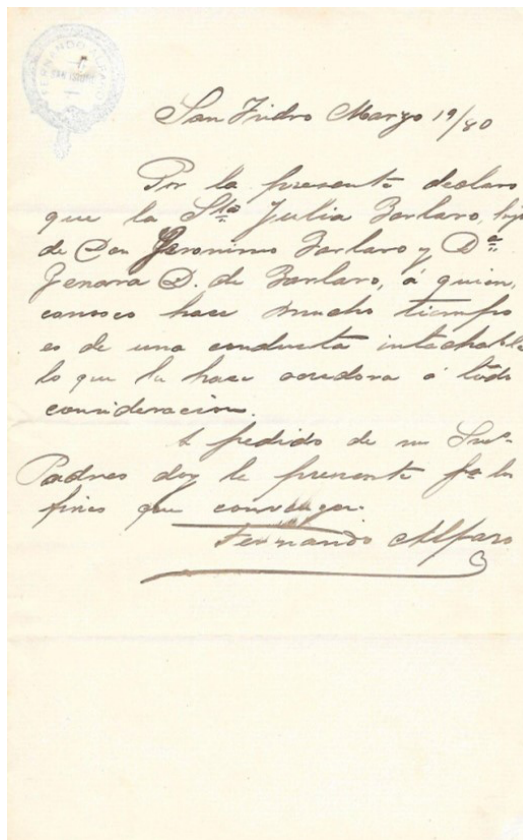 FERNANDO ALFARO
SAN ISIDRO
San Isidro Marzo 19/80
Por la presente declaro
que la Sta Julia Barbaro, hija
de Don Geronimo Barbaro y Da
Genara D. de Barbaro, á quien,
conosco hace mucho tiempo
es de una conducta intachable
lo que la hace acredora á toda
consideracion.
A pedido de su Sres
Padres doy la presente pa los
fines que convengan
Fernando Alfaro